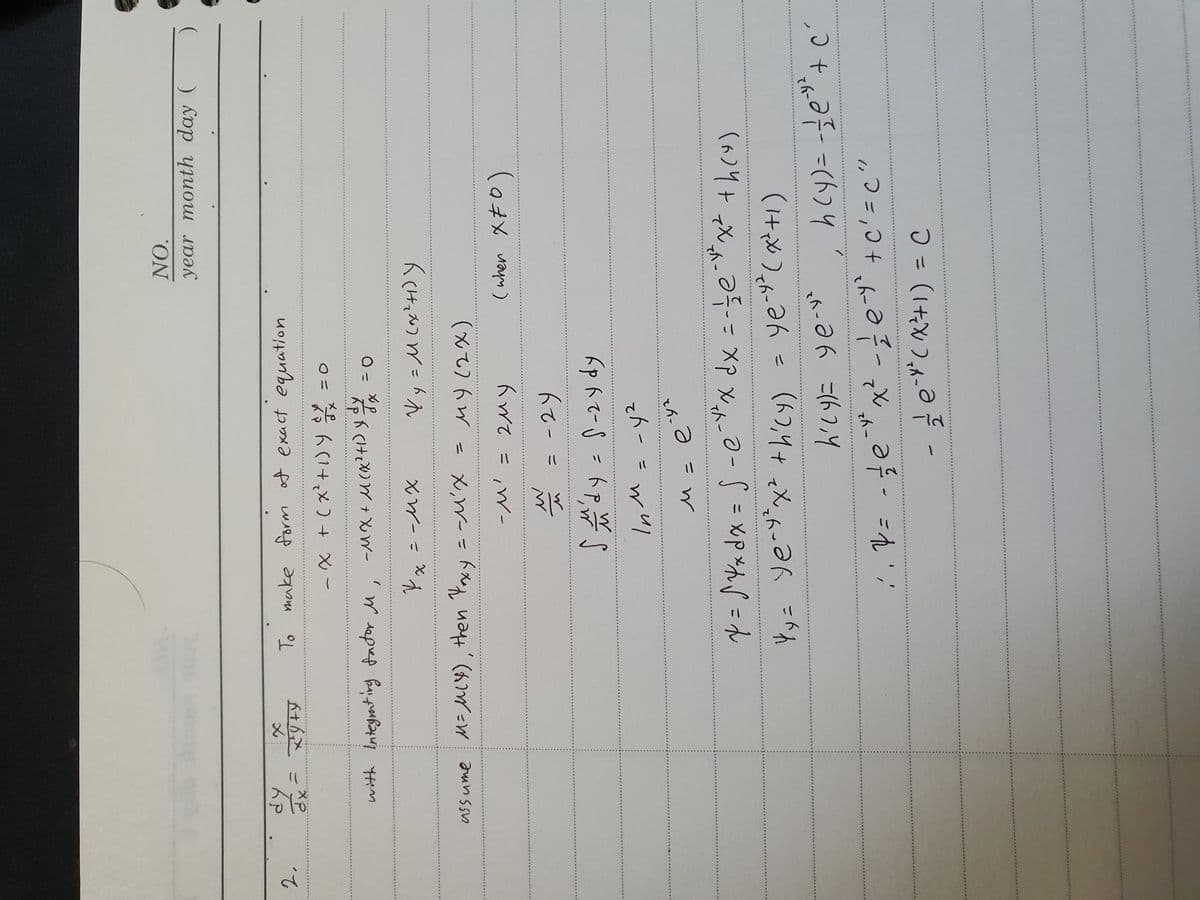 NO.
year month day ( )
2. dy/dx = x/(x²y+y) To make form of exact equation
-x + (x²+1)y dy/dx = 0
with Integrating factor μ, -μx + μ(x²+1)y dy/dx = 0
Ψx = -μx Ψy = μ(x²+1)y
assume μ=μ(y), then Ψxy = -μ'x = μy(2x)
-μ' = 2μy (when x≠0)
μ'/μ = -2y
∫ μ'/μ dy = ∫ -2y dy
ln μ = -y²
μ = e^(-y²)
Ψ = ∫Ψx dx = ∫ -e^(-y²) x dx = -½e^(-y²)x² + h(y)
Ψy = ye^(-y²)x² + h'(y) = ye^(-y²)(x²+1)
h'(y) = ye^(-y²), h(y) = -½e^(-y²) + c'
∴ Ψ = -½e^(-y²)x² - ½e^(-y²) + c' = c''
-½e^(-y²)(x²+1) = C